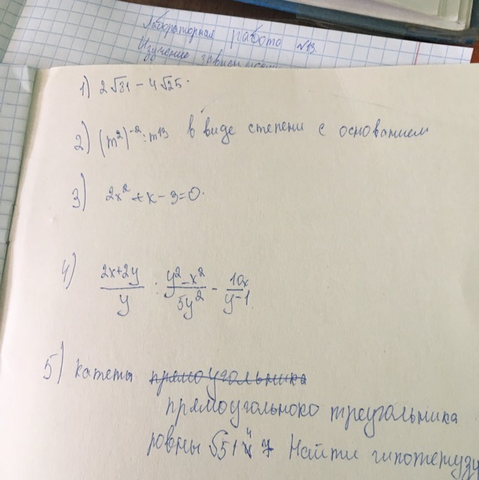 Лабораторная работа №13
Изучение
1) 2√81 - 4√25.
2) (m²)⁻² : m¹³ в виде степени с основанием
3) 2x² + x - 3 = 0.
4) (2x+2y)/y : (y²-x²)/5y² - 10x/(y-1)
5) Катеты прямоугольника
прямоугольного треугольника
равны √51 и 7 Найти гипотенузу